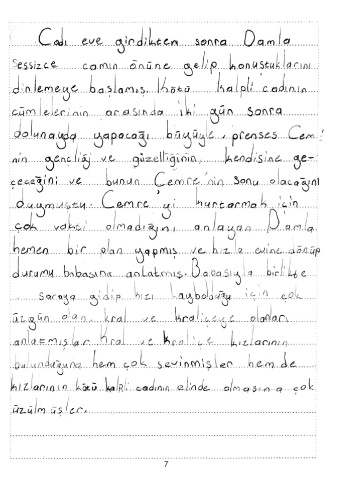 Cadı eve girdikten sonra Damla
sessizce camın önüne gelip konuştuklarını
dinlemeye başlamış. Kötü kalpli cadının
cümlelerinin arasında iki gün sonra
dolunayda yapacağı büyüyle, prenses Cemre'
nin gençliği ve güzelliğinin, kendisine ge-
çeceğini ve bunun Cemre'nin sonu olacağını
duymuştu. Cemre'yi kurtarmak için
çok vakti olmadığını anlayan Damla
hemen bir plan yapmış ve hızla evine dönüp
durumu babasına anlatmış. Babasıyla birlikte
saraya gidip kızı kaybolduğu için çok
üzgün olan kral ve kraliçeye olanları
anlatmışlar Kral ve Kraliçe kızlarının
bulunduğuna hem çok sevinmişler hem de
kızlarının kötü kalpli cadının elinde olmasına çok
üzülmüşler.
7